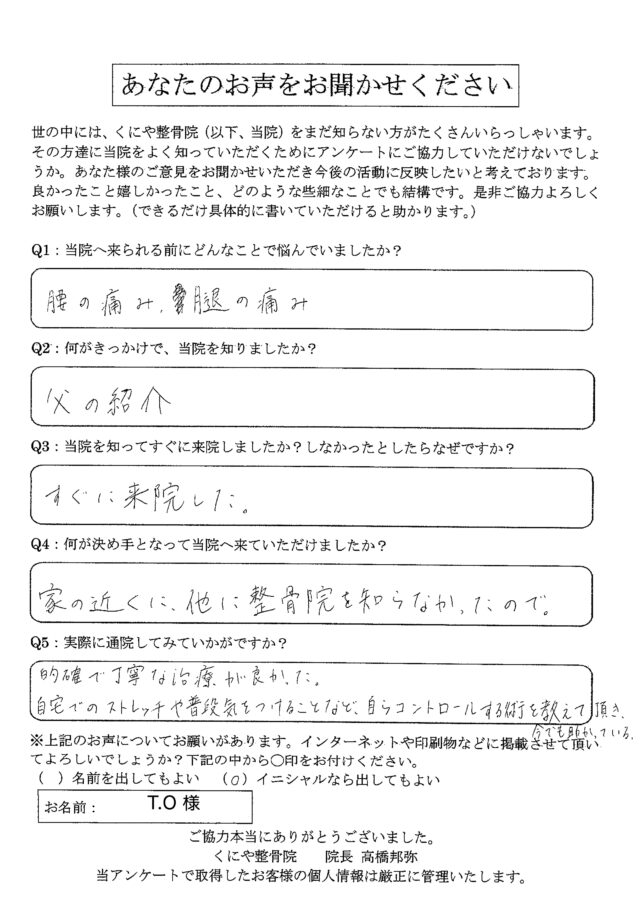 あなたのお声をお聞かせください
世の中には、くにや整骨院（以下、当院）をまだ知らない方がたくさんいらっしゃいます。
その方達に当院をよく知っていただくためにアンケートにご協力していただけないでしょ
うか。あなた様のご意見をお聞かせいただき今後の活動に反映したいと考えております。
良かったこと嬉しかったこと、どのような些細なことでも結構です。是非ご協力よろしく
お願いします。（できるだけ具体的に書いていただけると助かります。）
Q1：当院へ来られる前にどんなことで悩んでいましたか？
腰の痛み、腿の痛み
Q2：何がきっかけで、当院を知りましたか？
父の紹介
Q3：当院を知ってすぐに来院しましたか？しなかったとしたらなぜですか？
すぐに来院した。
Q4：何が決め手となって当院へ来ていただけましたか？
家の近くに、他に整骨院を知らなかったので。
Q5：実際に通院してみていかがですか？
的確で丁寧な治療が良かった。
自宅でのストレッチや普段気をつけることなど、自らコントロールする術を教えて頂き、
今でも助かっている。
※上記のお声についてお願いがあります。インターネットや印刷物などに掲載させて頂い
てよろしいでしょうか？下記の中から〇印をお付けください。
（ ）名前を出してもよい （○）イニシャルなら出してもよい
お名前： T.O 様
ご協力本当にありがとうございました。
くにや整骨院 院長 高橋邦弥
当アンケートで取得したお客様の個人情報は厳正に管理いたします。